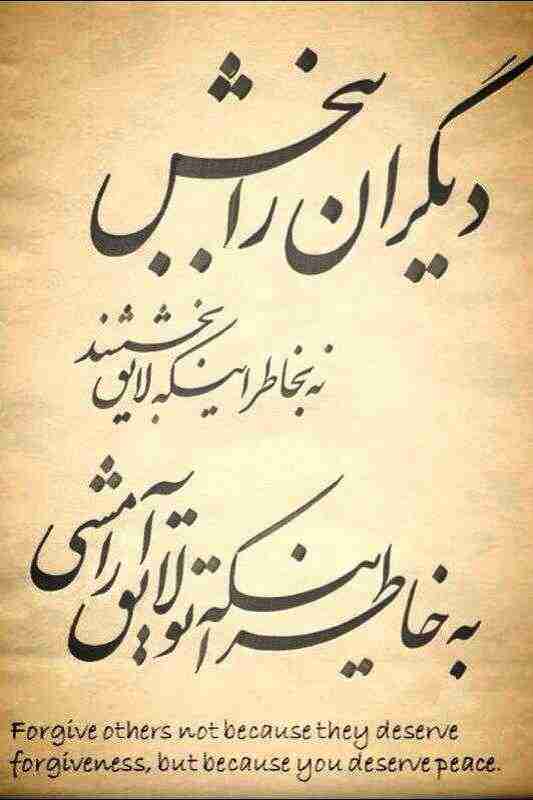 دیگران را ببخش
نه بخاطر اینکه لایق بخششند
به خاطر اینکه تو لایق آرامشی
Forgive others not because they deserve
forgiveness, but because you deserve peace.